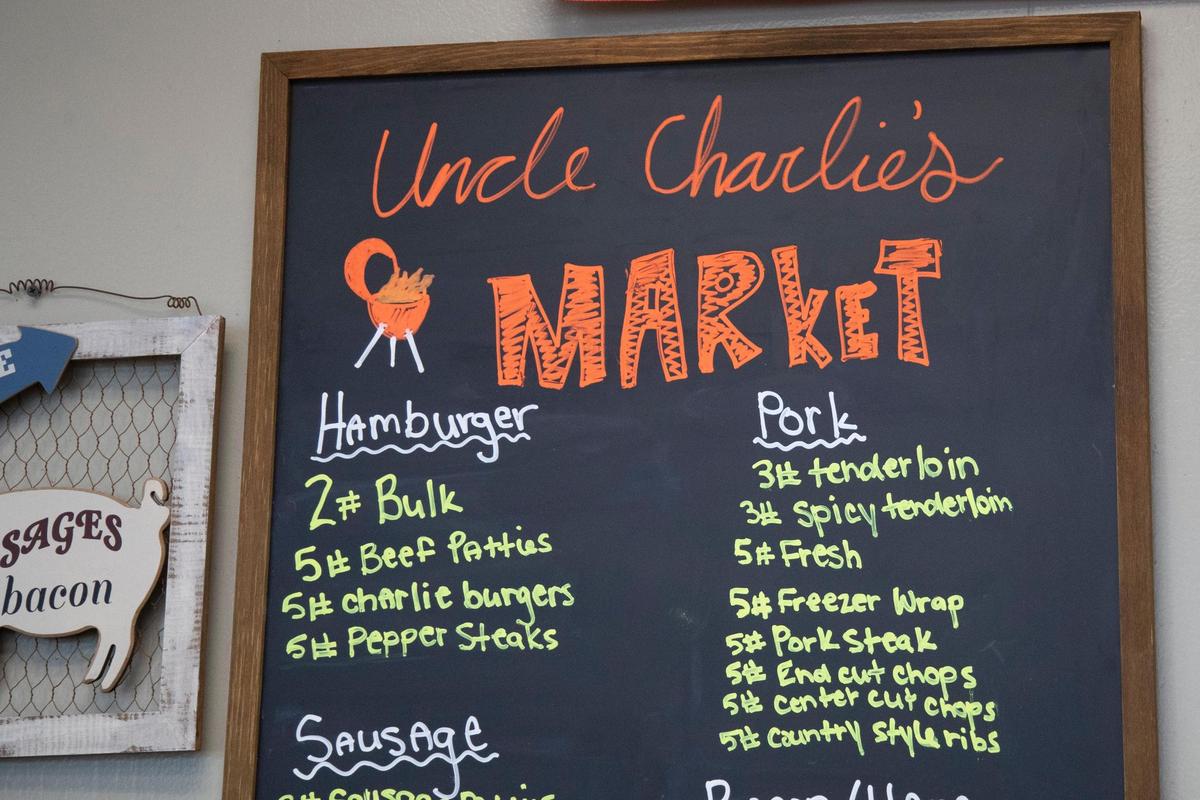 Uncle Charlie's
MARKET
Hamburger
2# Bulk
5# Beef Patties
5# charlie burgers
5# Pepper Steaks
Sausage
Pork
3# tenderloin
3# spicy tenderloin
5# Fresh
5# Freezer Wrap
5# Pork Steak
5# End cut chops
5# center cut chops
5# country style ribs
SAGES
bacon
E